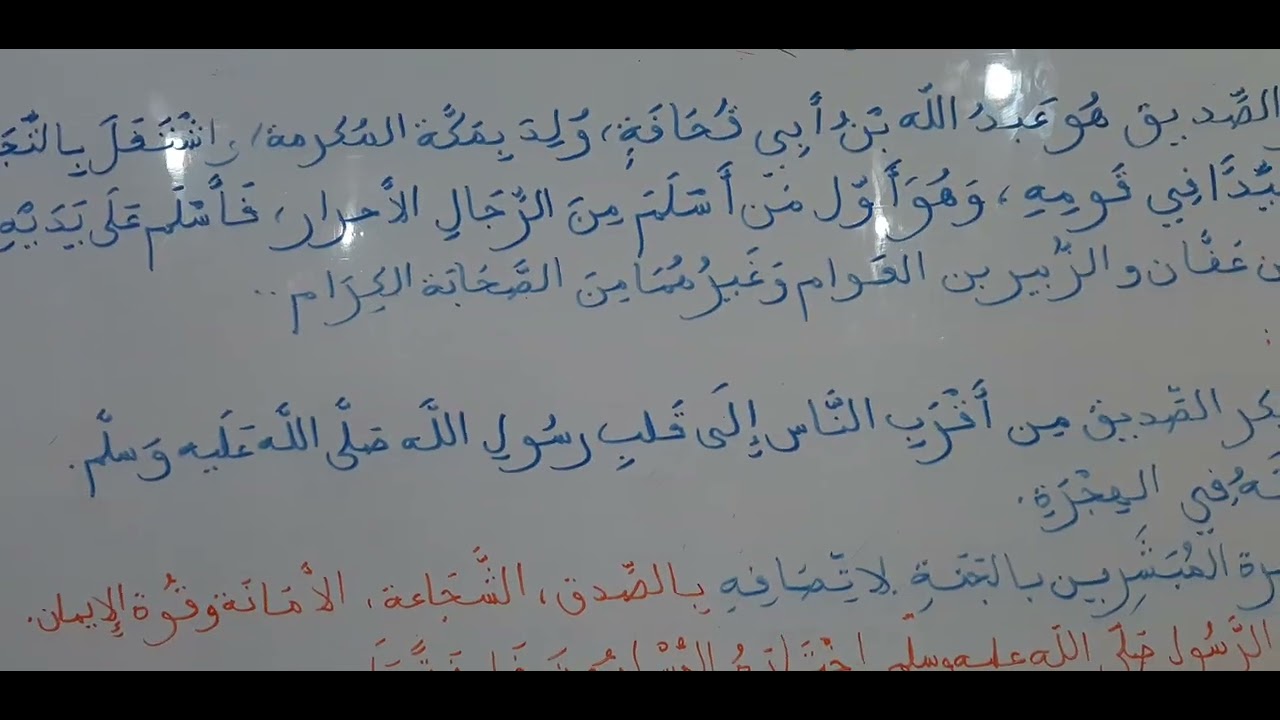 الصِّديق هُوَ عَبدُ اللَّه بَنُ أَبِي قُحَافَةٍ، وُلِدَ بِمَكَّة المُكرمة، واشْتَغَلَ بِالتِّجَ
يِّدًا فِي قَومِهِ، وَهُوَ أَوَّل مَن أَسْلَمَ مِنَ الرِّجَالِ الأحرار، فَأَسْلَم عَلَى يَدَيْهِ
ن عَفَّان والزُّبير بن العَوام وَغَيرُهُمَا مِنَ الصَّحَابَة الكِرَام..
:
كر الصِّديق مِن أَقْرَبِ النَّاس إِلَى قَلبِ رسُولِ اللَّه صَلَّى اللَّه عَلَيه وَسلَّم.
ـهُ فِي الهِجْرَةِ.
رة المُبَشَّرِين بالجَنَةِ لاتِّصَافِهِ بالصِّدق، الشَّجَاعة، الأمَانَة وقُوَّة الإيمان.
الرَّسُول صَلَّى اللَّه عليه وسلَّم